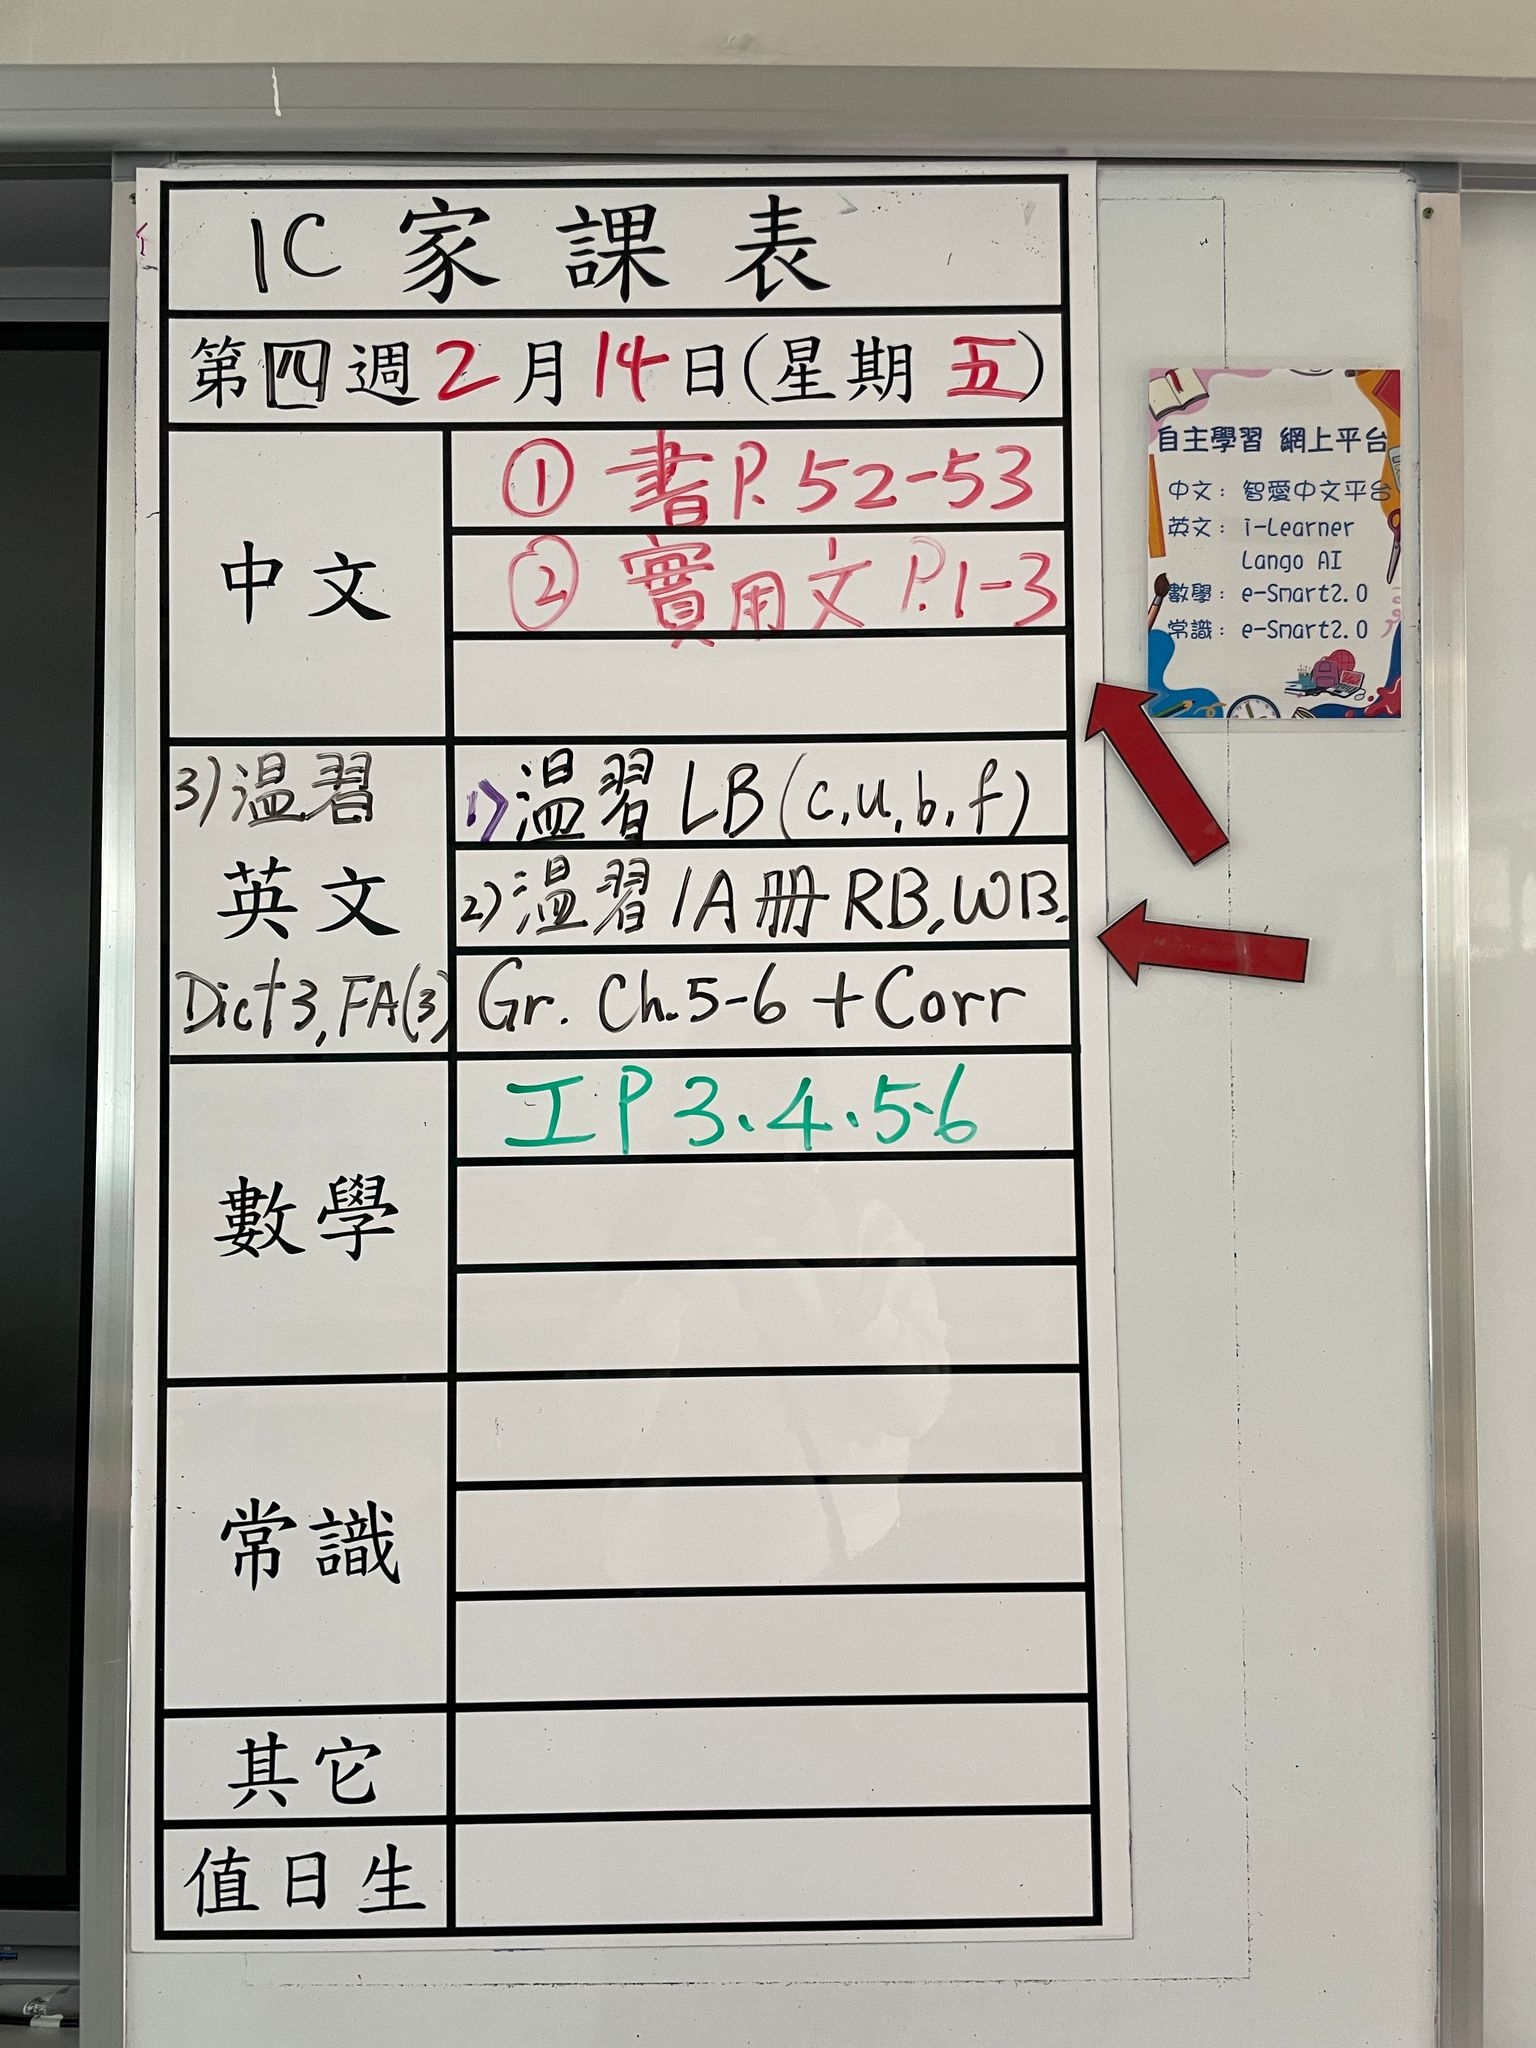 1C 家課表
第四週2月14日(星期五)
中文
① 書P.52-53
② 實用文P.1-3
3)溫習
英文
Dict3,FA(3)
1)溫習LB(c,u,b,f)
2)溫習1A冊RB,WB,
Gr. Ch.5-6 +Corr
數學
工P3、4、5、6
常識
其它
值日生
自主學習 網上平台
中文：智愛中文平台
英文：i-Learner
Lango AI
數學：e-Smart2.0
常識：e-Smart2.0